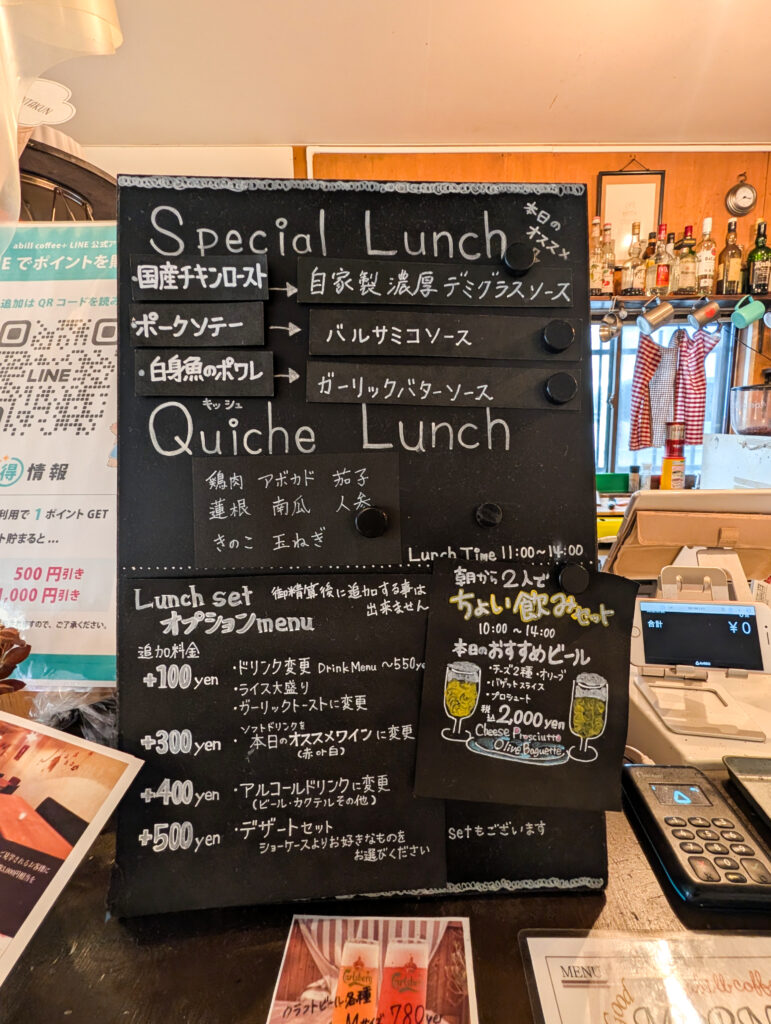 abill coffee+ LINE 公式ア
E でポイントを貯
追加は QR コードを読み
LINE
得 情報
利用で 1 ポイント GET
ト貯まると...
500 円引き
1,000 円引き
ますので、ご了承ください。
Special Lunch
本日の
オススメ
国産チキンロースト → 自家製 濃厚 デミグラスソース
ポークソテー → バルサミコソース
白身魚のポワレ → ガーリックバターソース
キッシュ
Quiche Lunch
鶏肉 アボカド 茄子
蓮根 南瓜 人参
きのこ 玉ねぎ
Lunch Time 11:00~14:00
Lunch set
オプションmenu
御精算後に追加する事は
出来ません
追加料金
+100 yen
・ドリンク変更 Drink Menu ~550ye
・ライス大盛り
・ガーリックトーストに変更
+300 yen
ソフトドリンクを
・本日のオススメワインに変更
(赤or白)
+400 yen
・アルコールドリンクに変更
(ビール・カクテルその他)
+500 yen
・デザートセット
ショーケースよりお好きなものを
お選びください
朝から2人で
ちょい飲みセット
10:00 ~ 14:00
本日のおすすめビール
・チーズ2種・オリーブ
・バゲットスライス
・プロシュート
税込 2,000yen
Cheese Prosciutto
Olive Baguette
setもございます
合計
¥0
Carlsberg
クラフトビール各種
Mサイズ 780ye
MENU
abill coffee